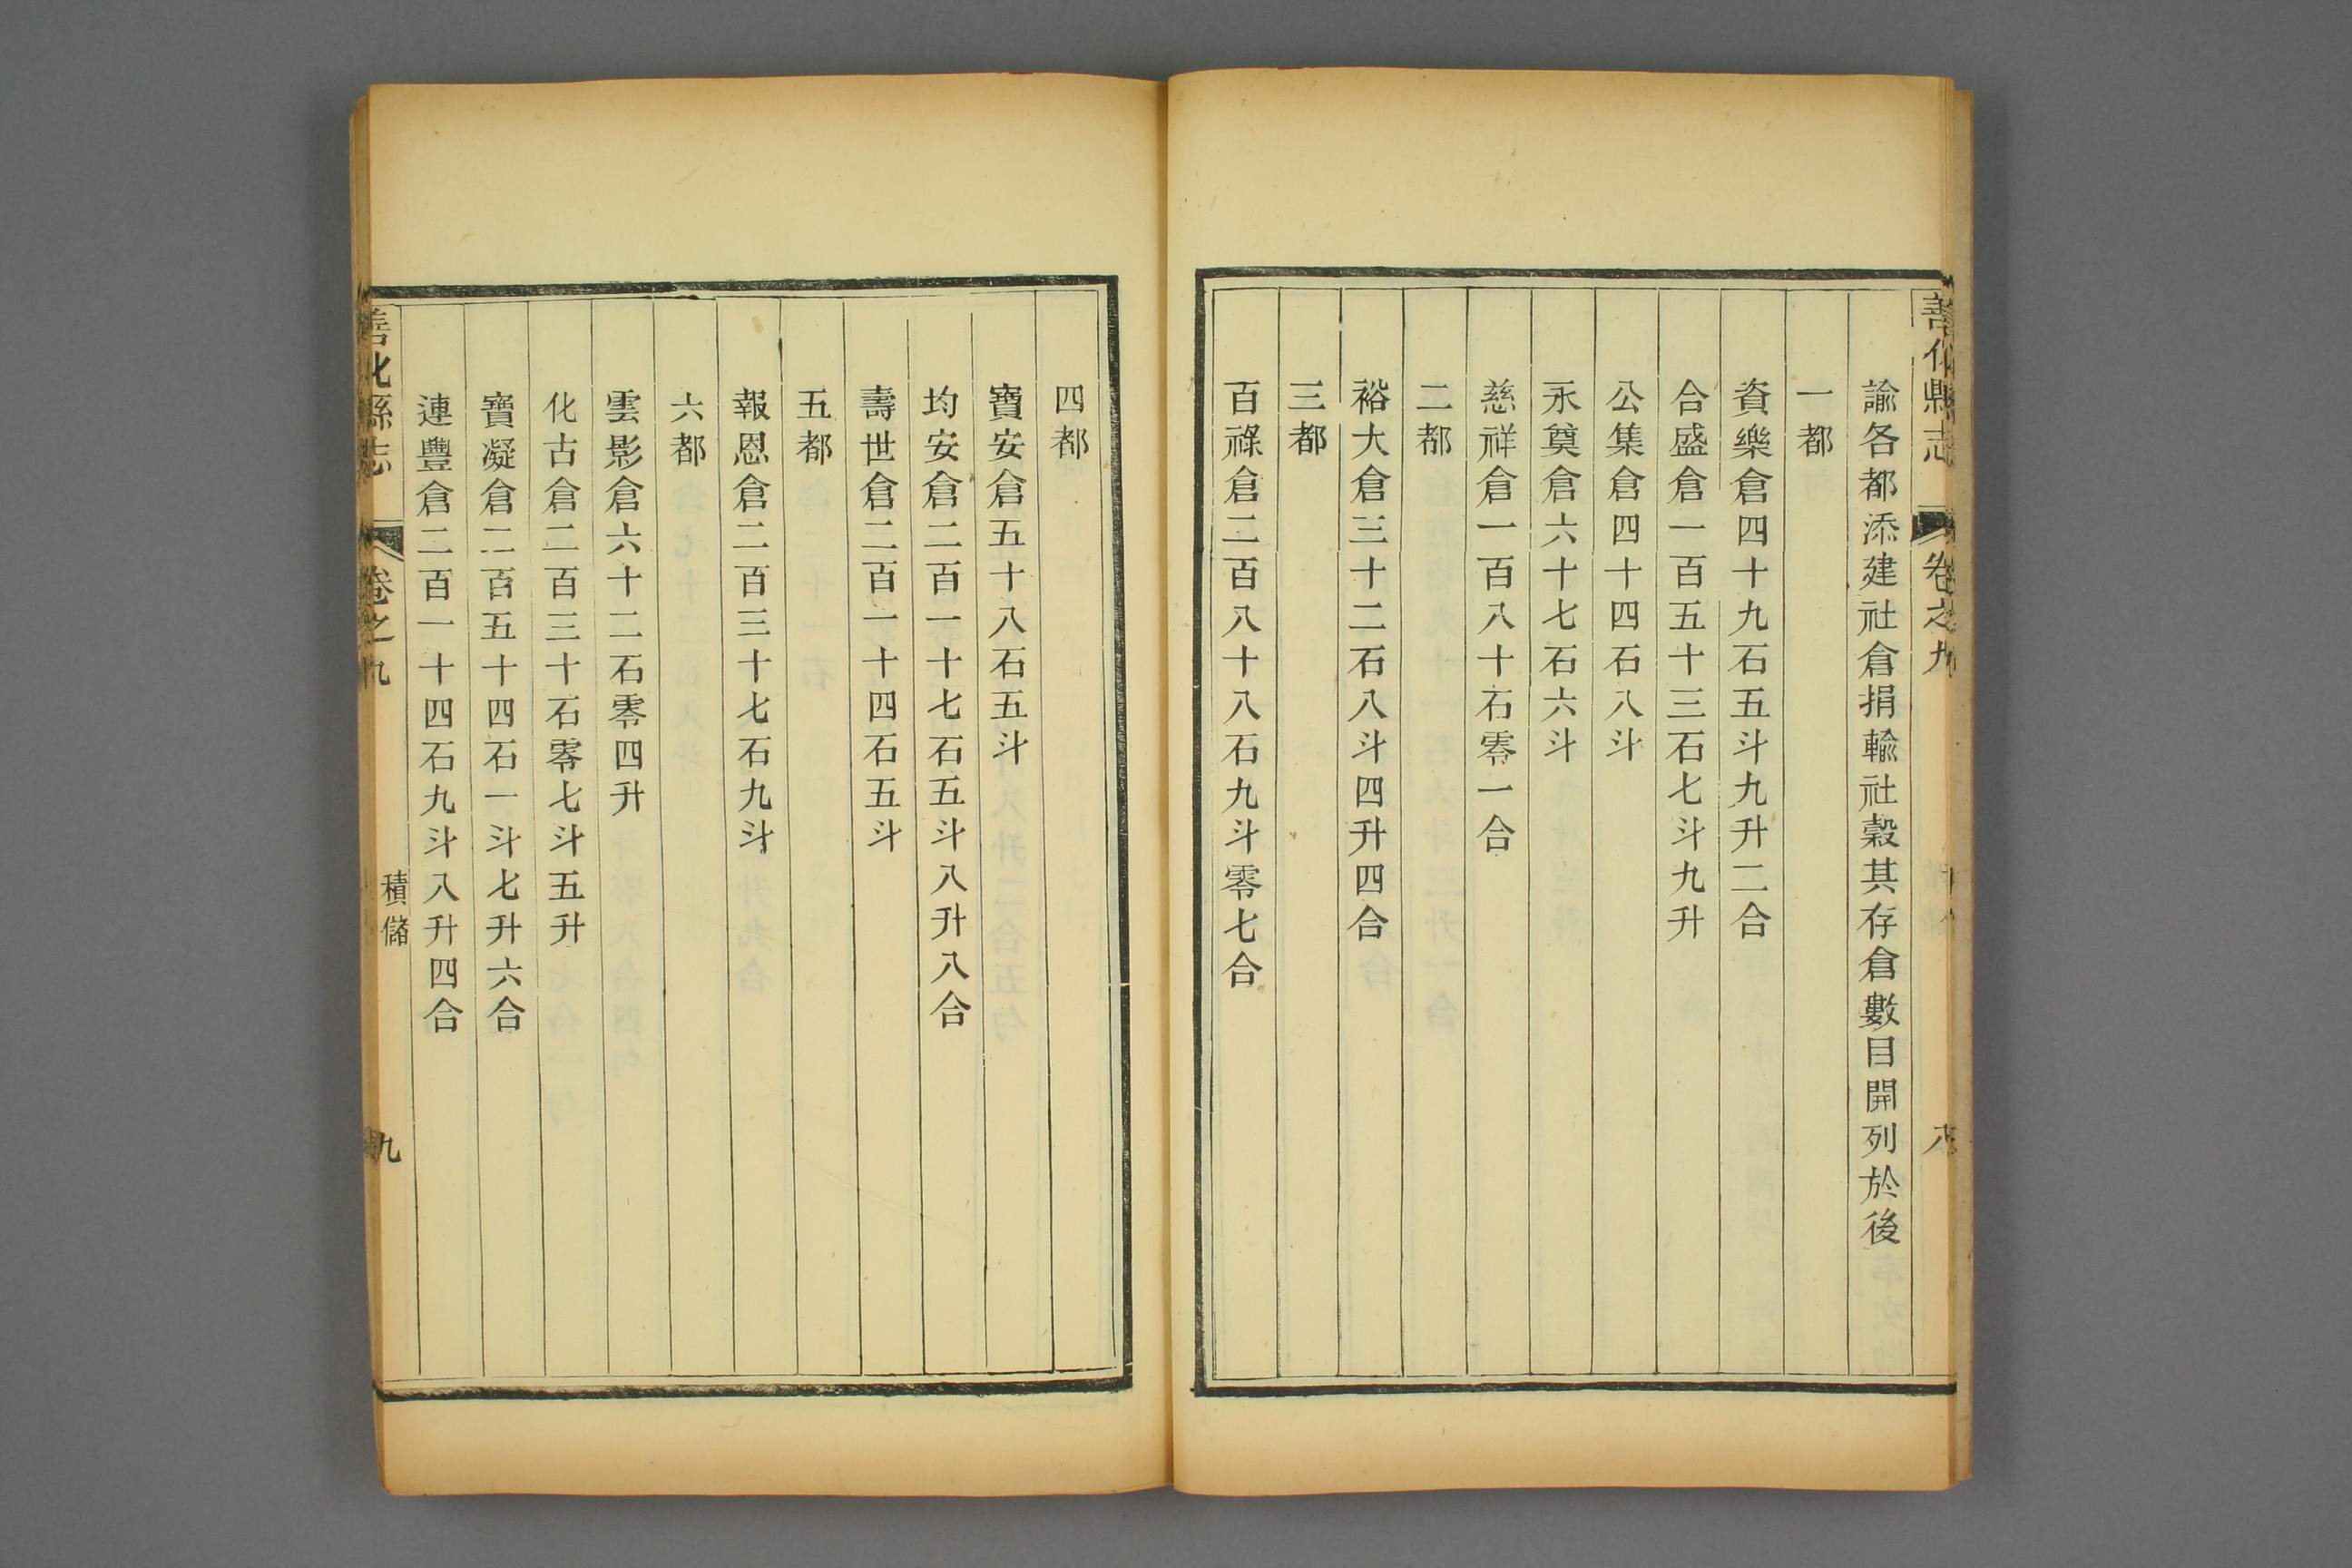 善化縣志 卷之九 八
諭各都添建社倉捐輸社穀其存倉數目開列於後
一都
資樂倉四十九石五斗九升二合
合盛倉一百五十三石七斗九升
公集倉四十四石八斗
永奠倉六十七石六斗
慈祥倉一百八十石零一合
二都
裕大倉三十二石八斗四升四合
三都
百祿倉二百八十八石九斗零七合
四都
寶安倉五十八石五斗
均安倉二百一十七石五斗八升八合
壽世倉二百一十四石五斗
五都
報恩倉二百三十七石九斗
六都
雲影倉六十二石零四升
化古倉二百三十石零七斗五升
寶凝倉二百五十四石一斗七升六合
連豐倉二百一十四石九斗八升四合
善化縣志 卷之九 積儲 九